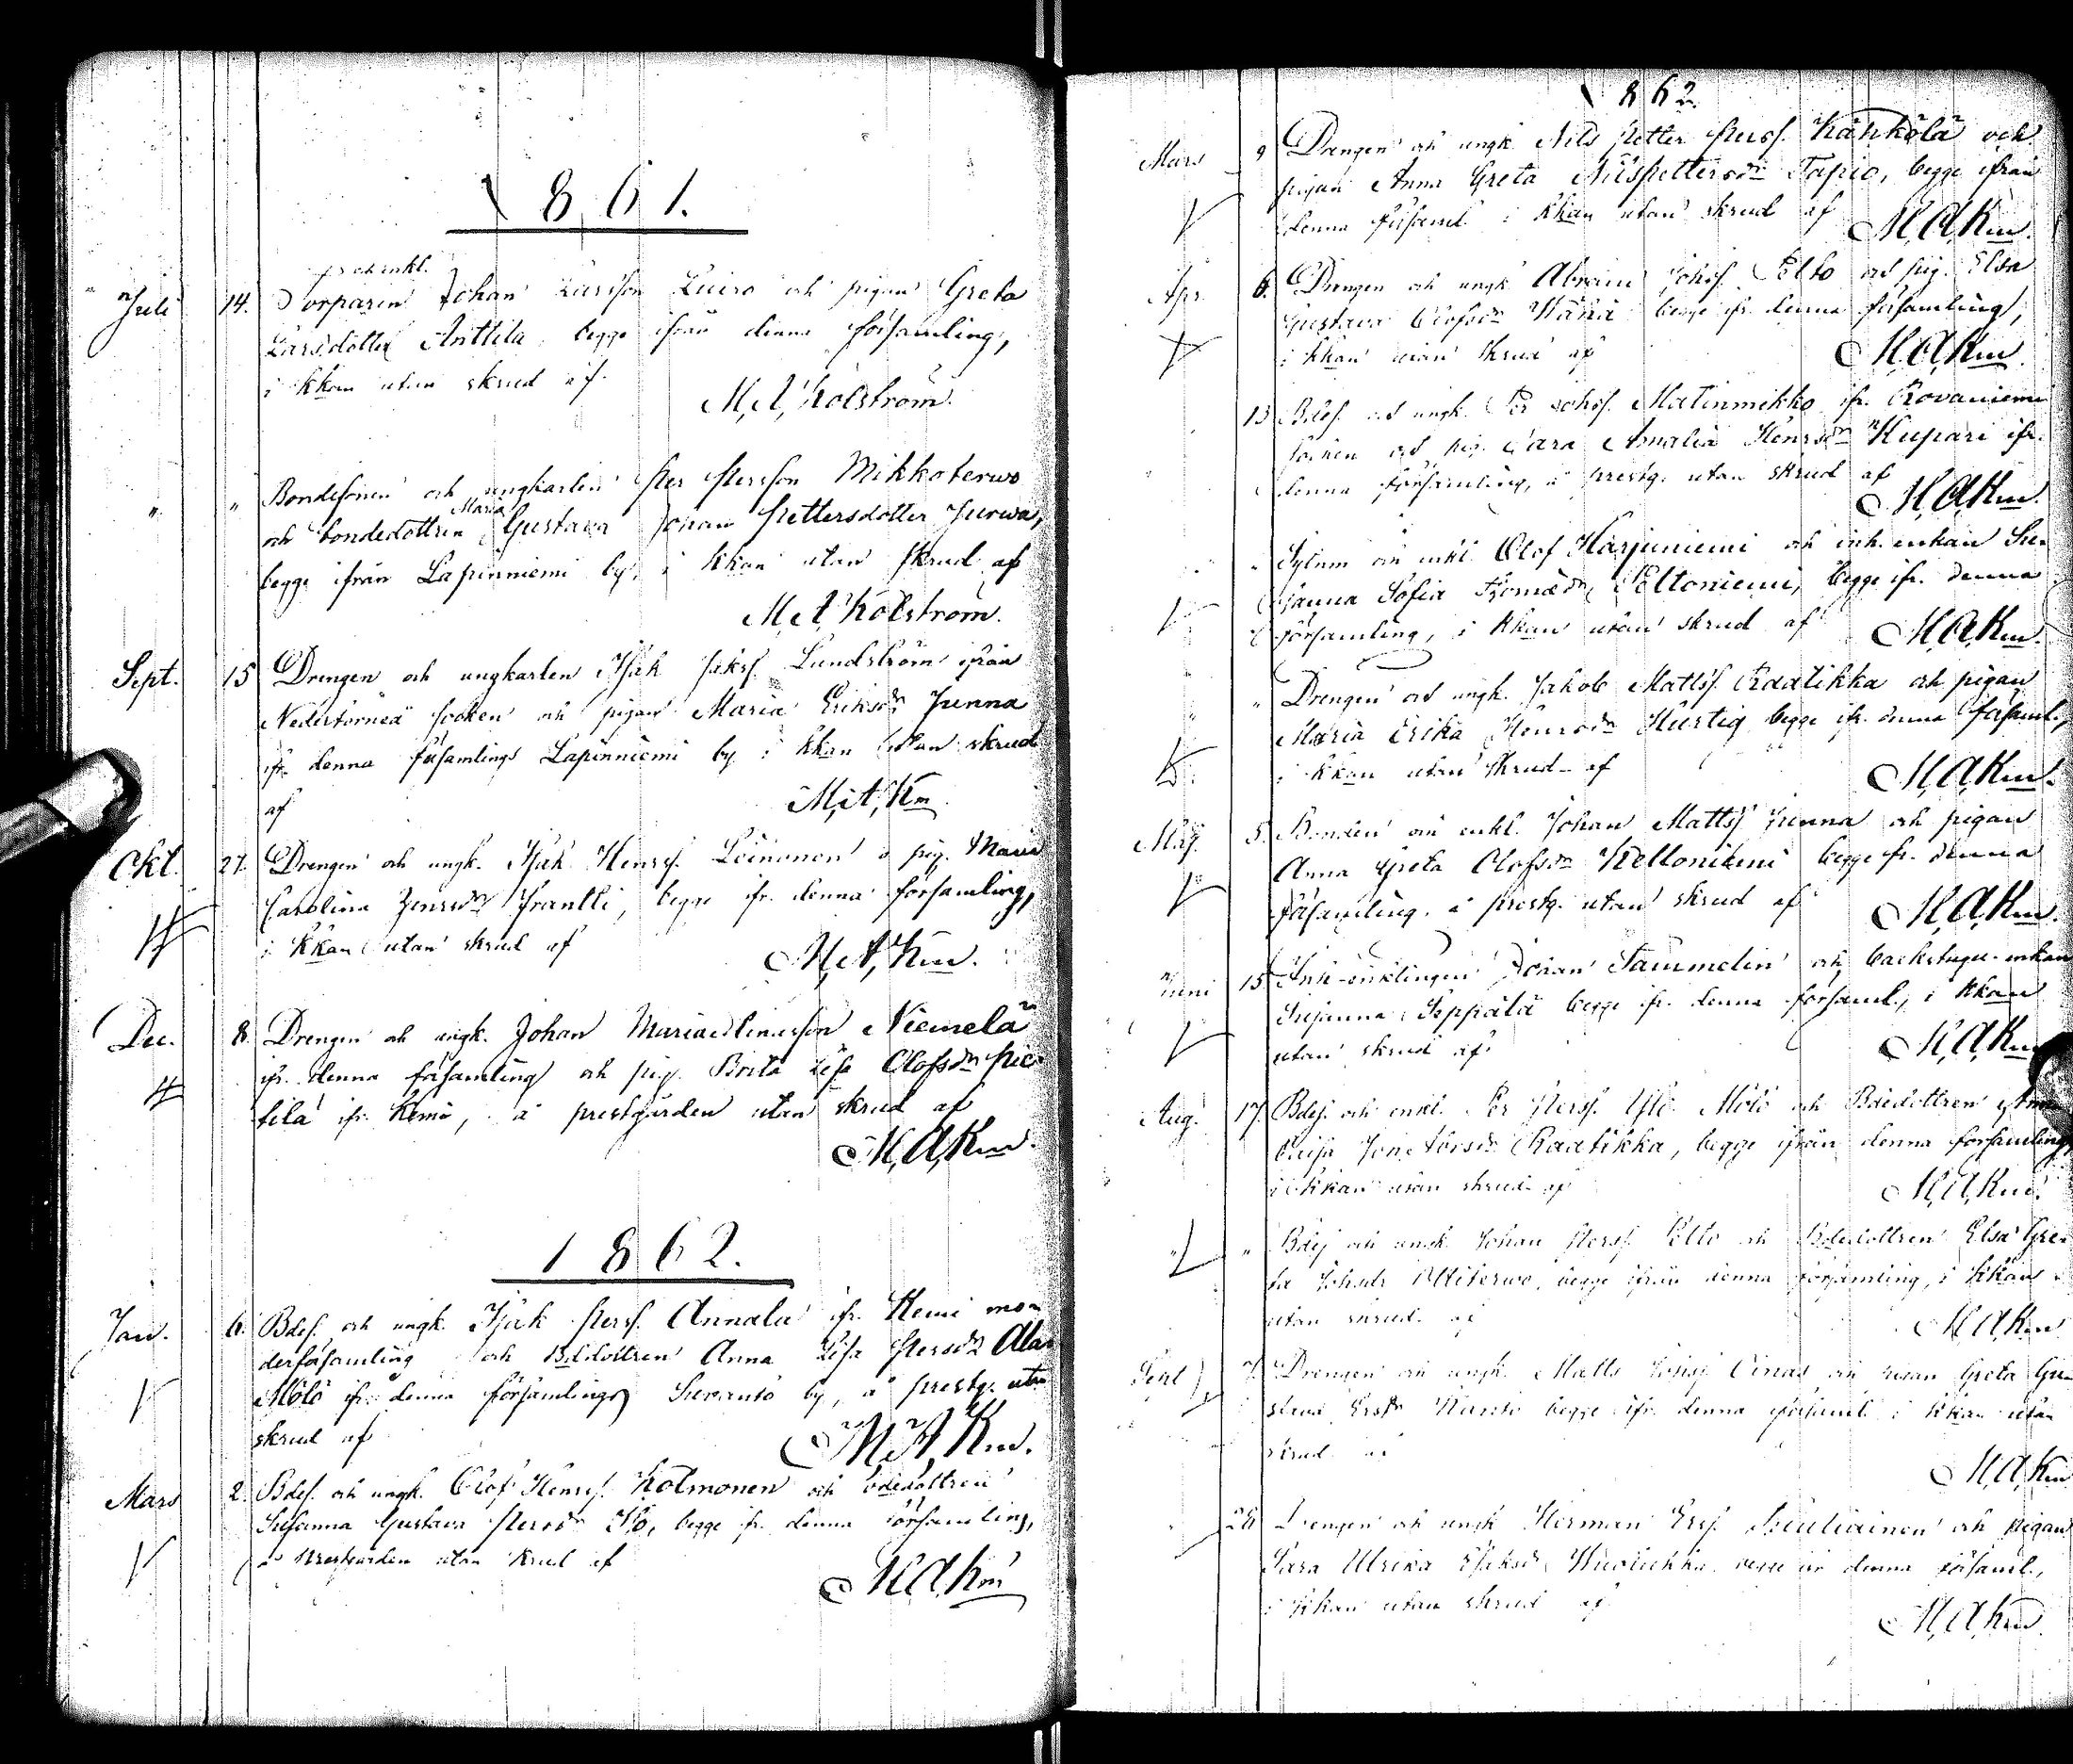 1861.
Juli 14. Torparen och enkl. Johan Larsson Luiro och pigan Greta
Larsdotter Anttila, begge ifrån denna församling,
i kkan utan skrud af
M. A. Kolström.
" " Bondesonen och ungkarlen Per Persson Mikkoterwo
och bondedottren Maria Gustava Johan Pettersdotter Jurwa,
begge ifrån Lapinniemi by, i kkan utan skrud af
M. A. Kolström.
Sept. 15 Drengen och ungkarlen Isak Isaksf. Lundström ifrån
Nedertorneå socken och pigan Maria Eriksdr Junna
ifr. denna församlings Lapinniemi by i kkan utan skrud
af M. A. Km.
Okt. 27. Drengen och ungk. Isak Henrsf. Leinonen o pig. Maria
Carolina Henrsdr Frantti, begge ifr. denna församling,
i kkan utan skrud af
M. A. Km.
Dec. 8. Drengen och ungk. Johan Mariaelinasson Niemelä
ifr. denna församling och pig. Brita Lisa Olofsdr Pie-
tilä ifr. Kemi, å prestgården utan skrud af
M. A. Km.
1862.
Jan. 6. Bdes. och ungk. Isak Persf. Annala ifr. Kemi mo-
derförsamling och Bdedottren Anna Lisa Persdr Ala
Mölö ifr. denna församlings Suvanto by, å prestg. utan
skrud af
M. A. Km.
Mars 2. Bdes. och ungk. Olof Henrsf. Kolmonen och bdedottren
Susanna Gustava Persdr Yö, begge ifr. denna församling,
å prestgården utan skrud af
M. A. Km
1862.
Mars 9 Drengen och ungk. Nils Petter Persf. Kähkölä och
pigan Anna Greta Nilspettersdr Tapio, begge ifrån
denna församl. i kkan utan skrud af
M. A. Km.
Apr. 6. Drengen och ungk. Abram Johsf. Pelto och pig. Elsa
Gustava Olofsdr begge ifr. denna församling,
i kkan utan skrud af
M. A. Km.
13 Bdes. och ungk. Per Johsf. Matinmikko ifr. Rovaniemi
socken och pig. Sara Amalia Henrsdr Kupari ifr.
denna församling, å prestg. utan skrud af
M. A. Km.
" Sytnm. och enkl. Olof Harjuniemi och inh. enkan Su-
sanna Sofia Peltoniemi, begge ifr. denna
församling, i kkan utan skrud af
M. A. Km.
" Drengen och ungk. Jakob Mattsf. Raatikka och pigan
Maria Erika Henrsdr Hurtig begge ifr. denna församl.,
i kkan utan skrud af
M. A. Km.
Maj. 5. Bonden och enkl. Johan Mattsf. Junna och pigan
Anna Greta Olofsdr Keltoniemi begge ifr. denna
församling, å prestg. utan skrud af
M. A. Km.
Juni 15 Inh-enklingen Johan Sammelin och backstugu-enkan
Susanna Seppälä begge ifr. denna församl., i kkan
utan skrud af
M. A. Km
Aug. 17. Bdes. och enkl. Per Persf. Yli Mölö och Bdedottren
Raatikka, begge ifrån denna församling
i kkan utan skrud af
M. A. Km.
" Bdes. och ungk. Johan Persf. Pelto och Bdedottren Elsa Gre-
ta Johsdr begge ifrån denna församling, i kkan
utan skrud af
M. A. Km
Sept. 7. Drengen och ungk. Matts Johsf. Oinas och pigan Greta Gu-
stava Ersdr begge ifr. denna församl. i kkan utan
skrud af
M. A. Km
28 Drengen och ungk. Herman Ersf. och pigan
Sara Ulrika Isaksdr begge ifr. denna församl.,
i kkan utan skrud af
M. A. Km.